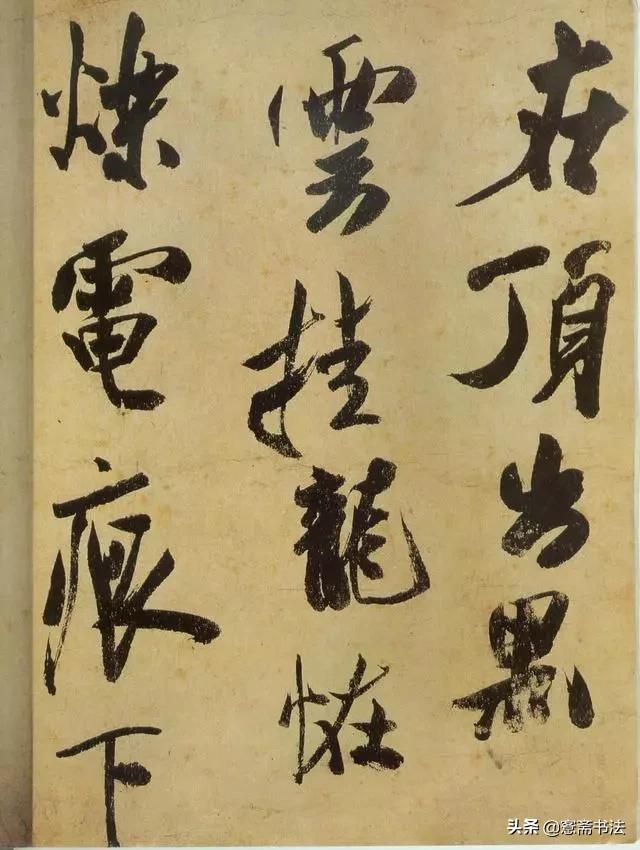 在頂出黑
雲挂龍恠
爍電痕下
头条 @愙斋书法